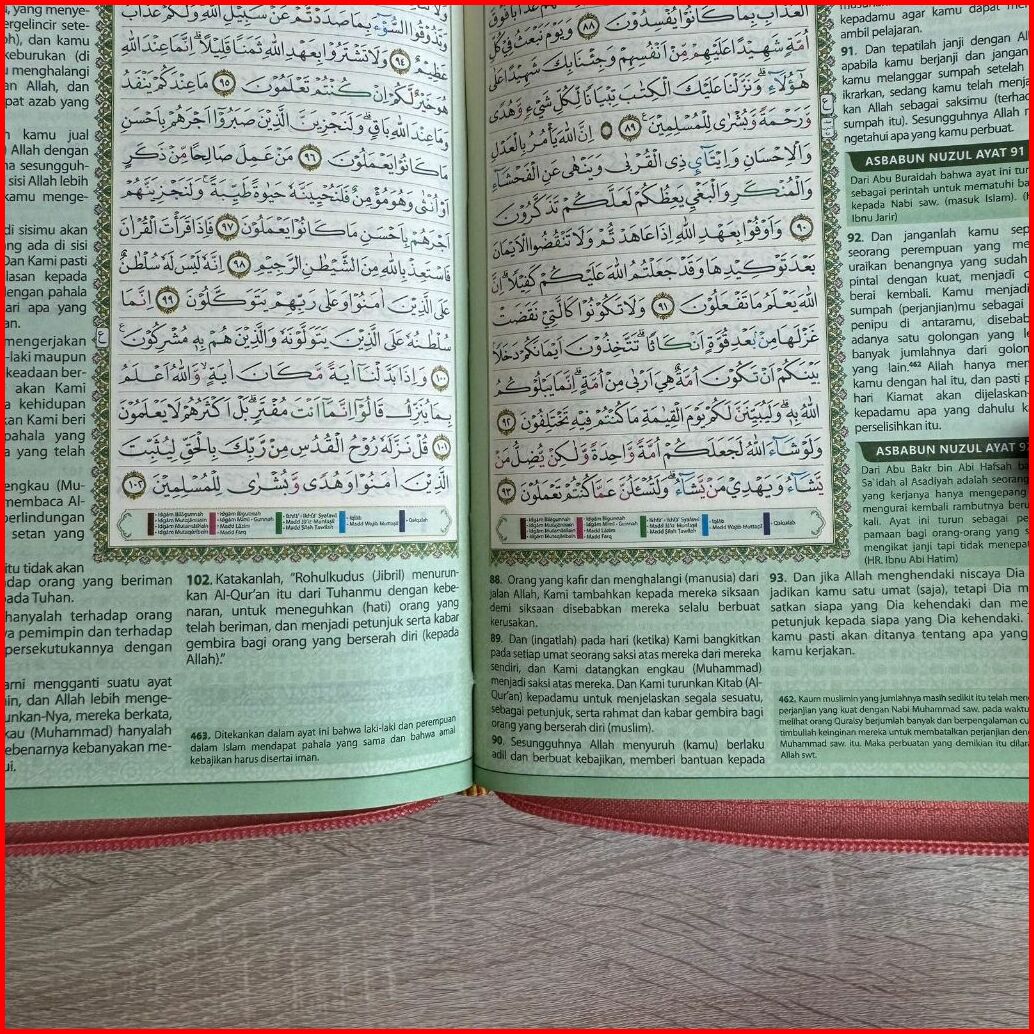 العَذَابِ بِمَا كَانُوْا يُفْسِدُوْنَ ﴿٨٨﴾ وَيَوْمَ نَبْعَثُ فِيْ كُلِّ
اُمَّةٍ شَهِيْدًا عَلَيْهِمْ مِّنْ اَنْفُسِهِمْ وَجِئْنَا بِكَ شَهِيْدًا عَلٰى
هٰٓؤُلَآءِۗ وَنَزَّلْنَا عَلَيْكَ الْكِتٰبَ تِبْيَانًا لِّكُلِّ شَيْءٍ وَّهُدًى
وَّرَحْمَةً وَّبُشْرٰى لِلْمُسْلِمِيْنَ ﴿٨٩﴾ اِنَّ اللّٰهَ يَأْمُرُ بِالْعَدْلِ
وَالْاِحْسَانِ وَاِيْتَاۤئِ ذِى الْقُرْبٰى وَيَنْهٰى عَنِ الْفَحْشَاۤءِ
وَالْمُنْكَرِ وَالْبَغْيِ يَعِظُكُمْ لَعَلَّكُمْ تَذَكَّرُوْنَ
﴿٩٠﴾ وَاَوْفُوْا بِعَهْدِ اللّٰهِ اِذَا عَاهَدْتُّمْ وَلَا تَنْقُضُوا الْاَيْمَانَ
بَعْدَ تَوْكِيْدِهَا وَقَدْ جَعَلْتُمُ اللّٰهَ عَلَيْكُمْ كَفِيْلًاۗ اِنَّ
اللّٰهَ يَعْلَمُ مَا تَفْعَلُوْنَ ﴿٩١﴾ وَلَا تَكُوْنُوْا كَالَّتِيْ نَقَضَتْ
غَزْلَهَا مِنْۢ بَعْدِ قُوَّةٍ اَنْكَاثًاۗ تَتَّخِذُوْنَ اَيْمَانَكُمْ دَخَلًاۢ
بَيْنَكُمْ اَنْ تَكُوْنَ اُمَّةٌ هِيَ اَرْبٰى مِنْ اُمَّةٍۗ اِنَّمَا يَبْلُوْكُمُ
اللّٰهُ بِهٖۗ وَلَيُبَيِّنَنَّ لَكُمْ يَوْمَ الْقِيٰمَةِ مَا كُنْتُمْ فِيْهِ تَخْتَلِفُوْنَ ﴿٩٢﴾
وَلَوْ شَاۤءَ اللّٰهُ لَجَعَلَكُمْ اُمَّةً وَّاحِدَةً وَّلٰكِنْ يُّضِلُّ مَنْ
يَّشَاۤءُ وَيَهْدِيْ مَنْ يَّشَاۤءُۗ وَلَتُسْـَٔلُنَّ عَمَّا كُنْتُمْ تَعْمَلُوْنَ ﴿٩٣﴾
kepadamu agar kamu dapat
ambil pelajaran.
91. Dan tepatilah janji dengan
apabila kamu berjanji dan jangan
kamu melanggar sumpah setelah
ikrarkan, sedang kamu telah
kan Allah sebagai saksimu (terhad
sumpah itu). Sesungguhnya Allah
ngetahui apa yang kamu perbuat.
ASBABUN NUZUL AYAT 91
Dari Abu Buraidah bahwa ayat ini tu
sebagai perintah untuk mematuhi ba
kepada Nabi saw. (masuk Islam).
Ibnu Jarir)
92. Dan janganlah kamu sep
seorang perempuan yang me
uraikan benangnya yang sudah
pintal dengan kuat, menjadi
berai kembali. Kamu menjadi
sumpah (perjanjian)mu sebagai
penipu di antaramu, disebab
adanya satu golongan yang le
banyak jumlahnya dari golon
yang lain.⁴⁶² Allah hanya me
kamu dengan hal itu, dan pasti
hari Kiamat akan dijelaskan
kepadamu apa yang dahulu
perselisihkan itu.
ASBABUN NUZUL AYAT 9
Dari Abu Bakr bin Abi Hafsah ba
Sa'idah al Asadiyah adalah seorang
yang kerjanya hanya mengepang
mengurai kembali rambutnya beru
kali. Ayat ini turun sebagai
pamaan bagi orang-orang yang s
mengikat janji tapi tidak menepat
(HR. Ibnu Abi Hatim)
88. Orang yang kafir dan menghalangi (manusia) dari
jalan Allah, Kami tambahkan kepada mereka siksaan
demi siksaan disebabkan mereka selalu berbuat
kerusakan.
89. Dan (ingatlah) pada hari (ketika) Kami bangkitkan
pada setiap umat seorang saksi atas mereka dari mereka
sendiri, dan Kami datangkan engkau (Muhammad)
menjadi saksi atas mereka. Dan Kami turunkan Kitab (Al-
Qur'an) kepadamu untuk menjelaskan segala sesuatu,
sebagai petunjuk, serta rahmat dan kabar gembira bagi
orang yang berserah diri (muslim).
90. Sesungguhnya Allah menyuruh (kamu) berlaku
adil dan berbuat kebajikan, memberi bantuan kepada
93. Dan jika Allah menghendaki niscaya Dia
jadikan kamu satu umat (saja), tetapi Dia m
satkan siapa yang Dia kehendaki dan me
petunjuk kepada siapa yang Dia kehendaki.
kamu pasti akan ditanya tentang apa yang
kamu kerjakan.
462. Kaum muslimin yang jumlahnya masih sedikit itu telah men
perjanjian yang kuat dengan Nabi Muhammad saw. pada waktu
melihat orang Quraisy berjumlah banyak dan berpengalaman cu
timbullah keinginan mereka untuk membatalkan perjanjian denga
Muhammad saw. itu. Maka perbuatan yang demikian itu dilara
Allah swt.
وَتَذُوْقُوا السُّوْۤءَ بِمَا صَدَدْتُّمْ عَنْ سَبِيْلِ اللّٰهِ وَلَكُمْ عَذَابٌ
عَظِيْمٌ ﴿٩٤﴾ وَلَا تَشْتَرُوْا بِعَهْدِ اللّٰهِ ثَمَنًا قَلِيْلًاۗ اِنَّمَا عِنْدَ اللّٰهِ
هُوَ خَيْرٌ لَّكُمْ اِنْ كُنْتُمْ تَعْلَمُوْنَ ﴿٩٥﴾ مَا عِنْدَكُمْ يَنْفَدُ
وَمَا عِنْدَ اللّٰهِ بَاقٍۗ وَلَنَجْزِيَنَّ الَّذِيْنَ صَبَرُوْٓا اَجْرَهُمْ بِاَحْسَنِ
مَا كَانُوْا يَعْمَلُوْنَ ﴿٩٦﴾ مَنْ عَمِلَ صَالِحًا مِّنْ ذَكَرٍ
اَوْ اُنْثٰى وَهُوَ مُؤْمِنٌ فَلَنُحْيِيَنَّهٗ حَيٰوةً طَيِّبَةًۚ وَلَنَجْزِيَنَّهُمْ
اَجْرَهُمْ بِاَحْسَنِ مَا كَانُوْا يَعْمَلُوْنَ ﴿٩٧﴾ فَاِذَا قَرَأْتَ الْقُرْاٰنَ
فَاسْتَعِذْ بِاللّٰهِ مِنَ الشَّيْطٰنِ الرَّجِيْمِ ﴿٩٨﴾ اِنَّهٗ لَيْسَ لَهٗ سُلْطٰنٌ
عَلَى الَّذِيْنَ اٰمَنُوْا وَعَلٰى رَبِّهِمْ يَتَوَكَّلُوْنَ ﴿٩٩﴾ اِنَّمَا
سُلْطٰنُهٗ عَلَى الَّذِيْنَ يَتَوَلَّوْنَهٗ وَالَّذِيْنَ هُمْ بِهٖ مُشْرِكُوْنَ
﴿١٠٠﴾ وَاِذَا بَدَّلْنَآ اٰيَةً مَّكَانَ اٰيَةٍۙ وَّاللّٰهُ اَعْلَمُ
بِمَا يُنَزِّلُ قَالُوْٓا اِنَّمَآ اَنْتَ مُفْتَرٍۗ بَلْ اَكْثَرُهُمْ لَا يَعْلَمُوْنَ
﴿١٠١﴾ قُلْ نَزَّلَهٗ رُوْحُ الْقُدُسِ مِنْ رَّبِّكَ بِالْحَقِّ لِيُثَبِّتَ
الَّذِيْنَ اٰمَنُوْا وَهُدًى وَّبُشْرٰى لِلْمُسْلِمِيْنَ ﴿١٠٢﴾
yang menye-
ergelincir sete-
oh), dan kamu
keburukan (di
menghalangi
an Allah, dan
pat azab yang
kamu jual
Allah dengan
a sesungguh-
sisi Allah lebih
kamu menge-
di sisimu akan
ng ada di sisi
Dan Kami pasti
lasan kepada
engan pahala
ari apa yang
an.
mengerjakan
-laki maupun
keadaan ber-
akan Kami
kehidupan
an Kami beri
pahala yang
a yang telah
engkau (Mu-
membaca Al-
perlindungan
setan yang
itu tidak akan
dap orang yang beriman
pada Tuhan.
hanyalah terhadap orang
a pemimpin dan terhadap
persekutukannya dengan
ami mengganti suatu ayat
in, dan Allah lebih menge-
unkan-Nya, mereka berkata,
kau (Muhammad) hanyalah
ebenarnya kebanyakan me-
ui.
102. Katakanlah, "Rohulkudus (Jibril) menurun-
kan Al-Qur'an itu dari Tuhanmu dengan kebe-
naran, untuk meneguhkan (hati) orang yang
telah beriman, dan menjadi petunjuk serta kabar
gembira bagi orang yang berserah diri (kepada
Allah)."
463. Ditekankan dalam ayat ini bahwa laki-laki dan perempuan
dalam Islam mendapat pahala yang sama dan bahwa amal
kebajikan harus disertai iman.